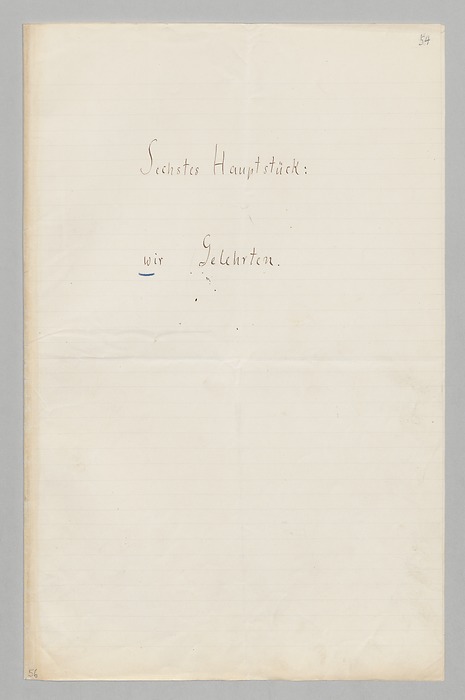 54
Sechstes Hauptstück:
wir Gelehrten.
56